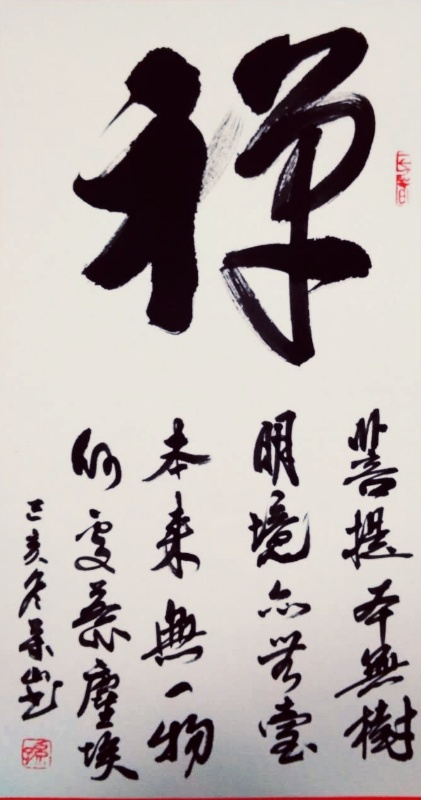 禅
菩提本無樹
明境亦無臺
本来無一物
何處惹塵埃
己亥冬